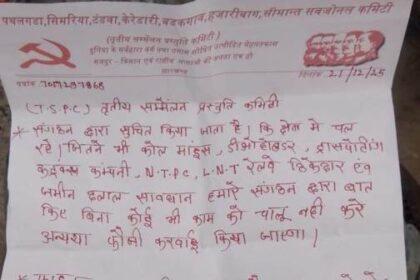 पथलगडा, सिमरिया, टंडवा, केरेडारी, बड़कागांव, हजारीबाग, सीमान्त सबजोनल कमिटी
(तृतीय सम्मेलन प्रस्तुति कमिटी)
दुनिया के सर्वहारा वर्ग तथा तमाम शोषित उत्पीड़ित मेहनतकश
मजदुर - किसान एवं राष्ट्रीय जनता एक हों
झारखण्ड
पत्रांक 7079237968
दिनांक 21/12/25
(T.S.P.C) तृतीय सम्मेलन प्रस्तुति कमिटी
* संगठन द्वारा सुचित किया जाता है। कि क्षेत्र में चल
रहे। जितने भी कोल माइंस, डीओहोल्डर, ट्रांसपोर्टिंग
कंपनी, N.T.P.C, L.N.T रेलवे ठिकेदार एवं
जमीन दलाल सावधान हमारे संगठन द्वारा बात
किए बिना कोई भी काम को चालू नही करे
अन्यथा फौजी करवाई किया जाएगा।